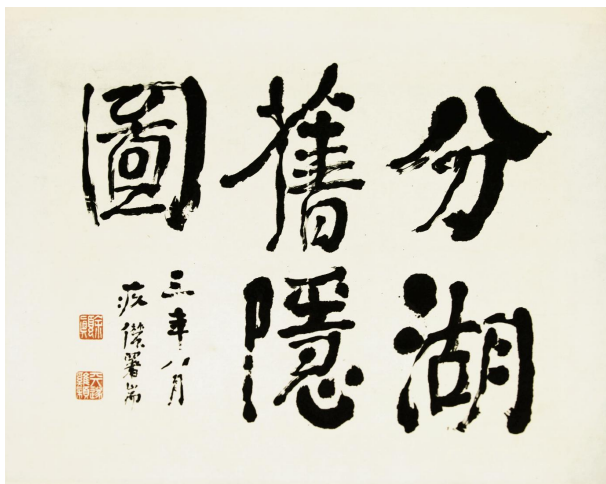 分湖
舊隱
圖
三年八月
疚儂署耑